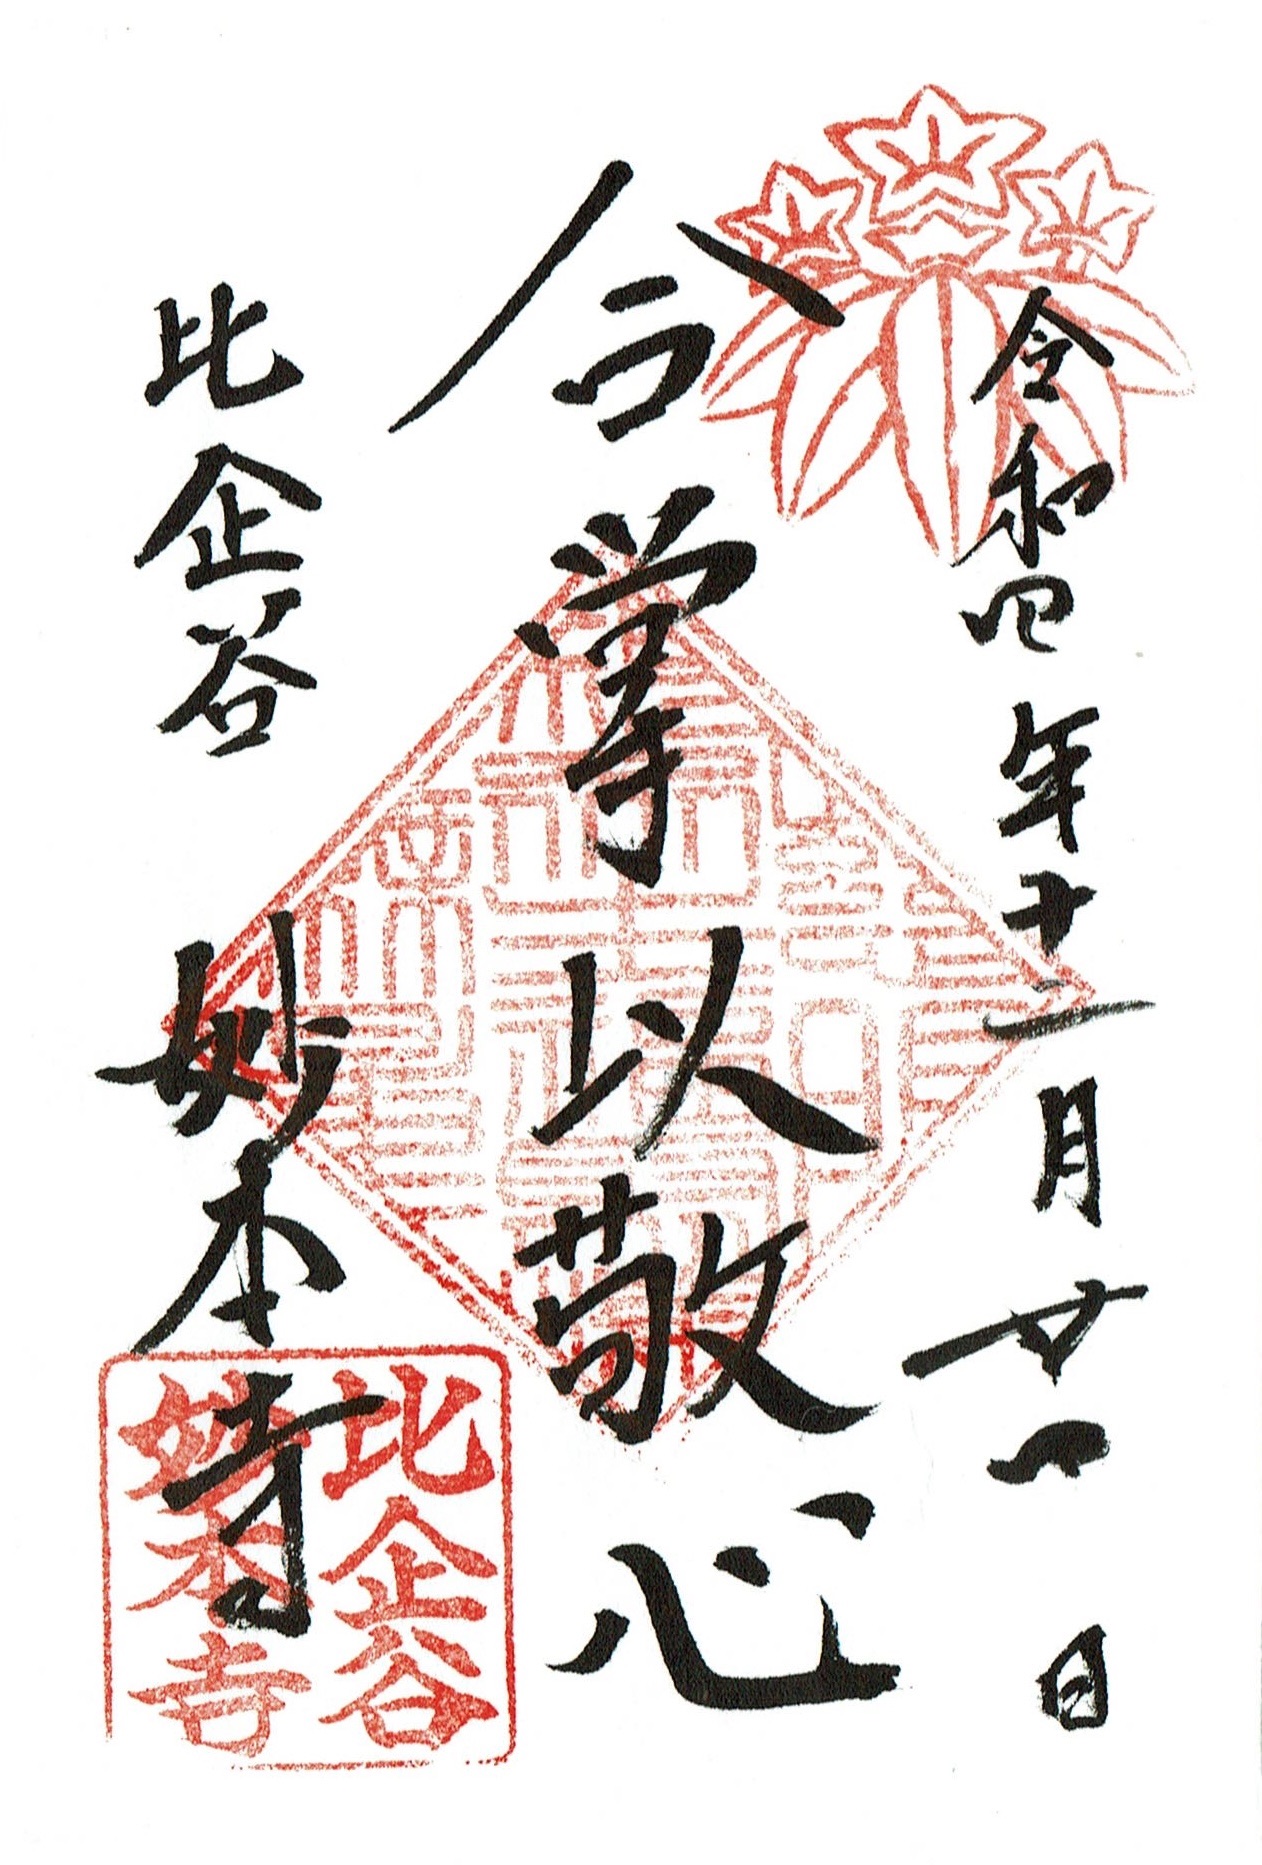 令和四年十一月廿一日
合掌以敬心
比企谷 妙本寺
比企谷
妙本寺